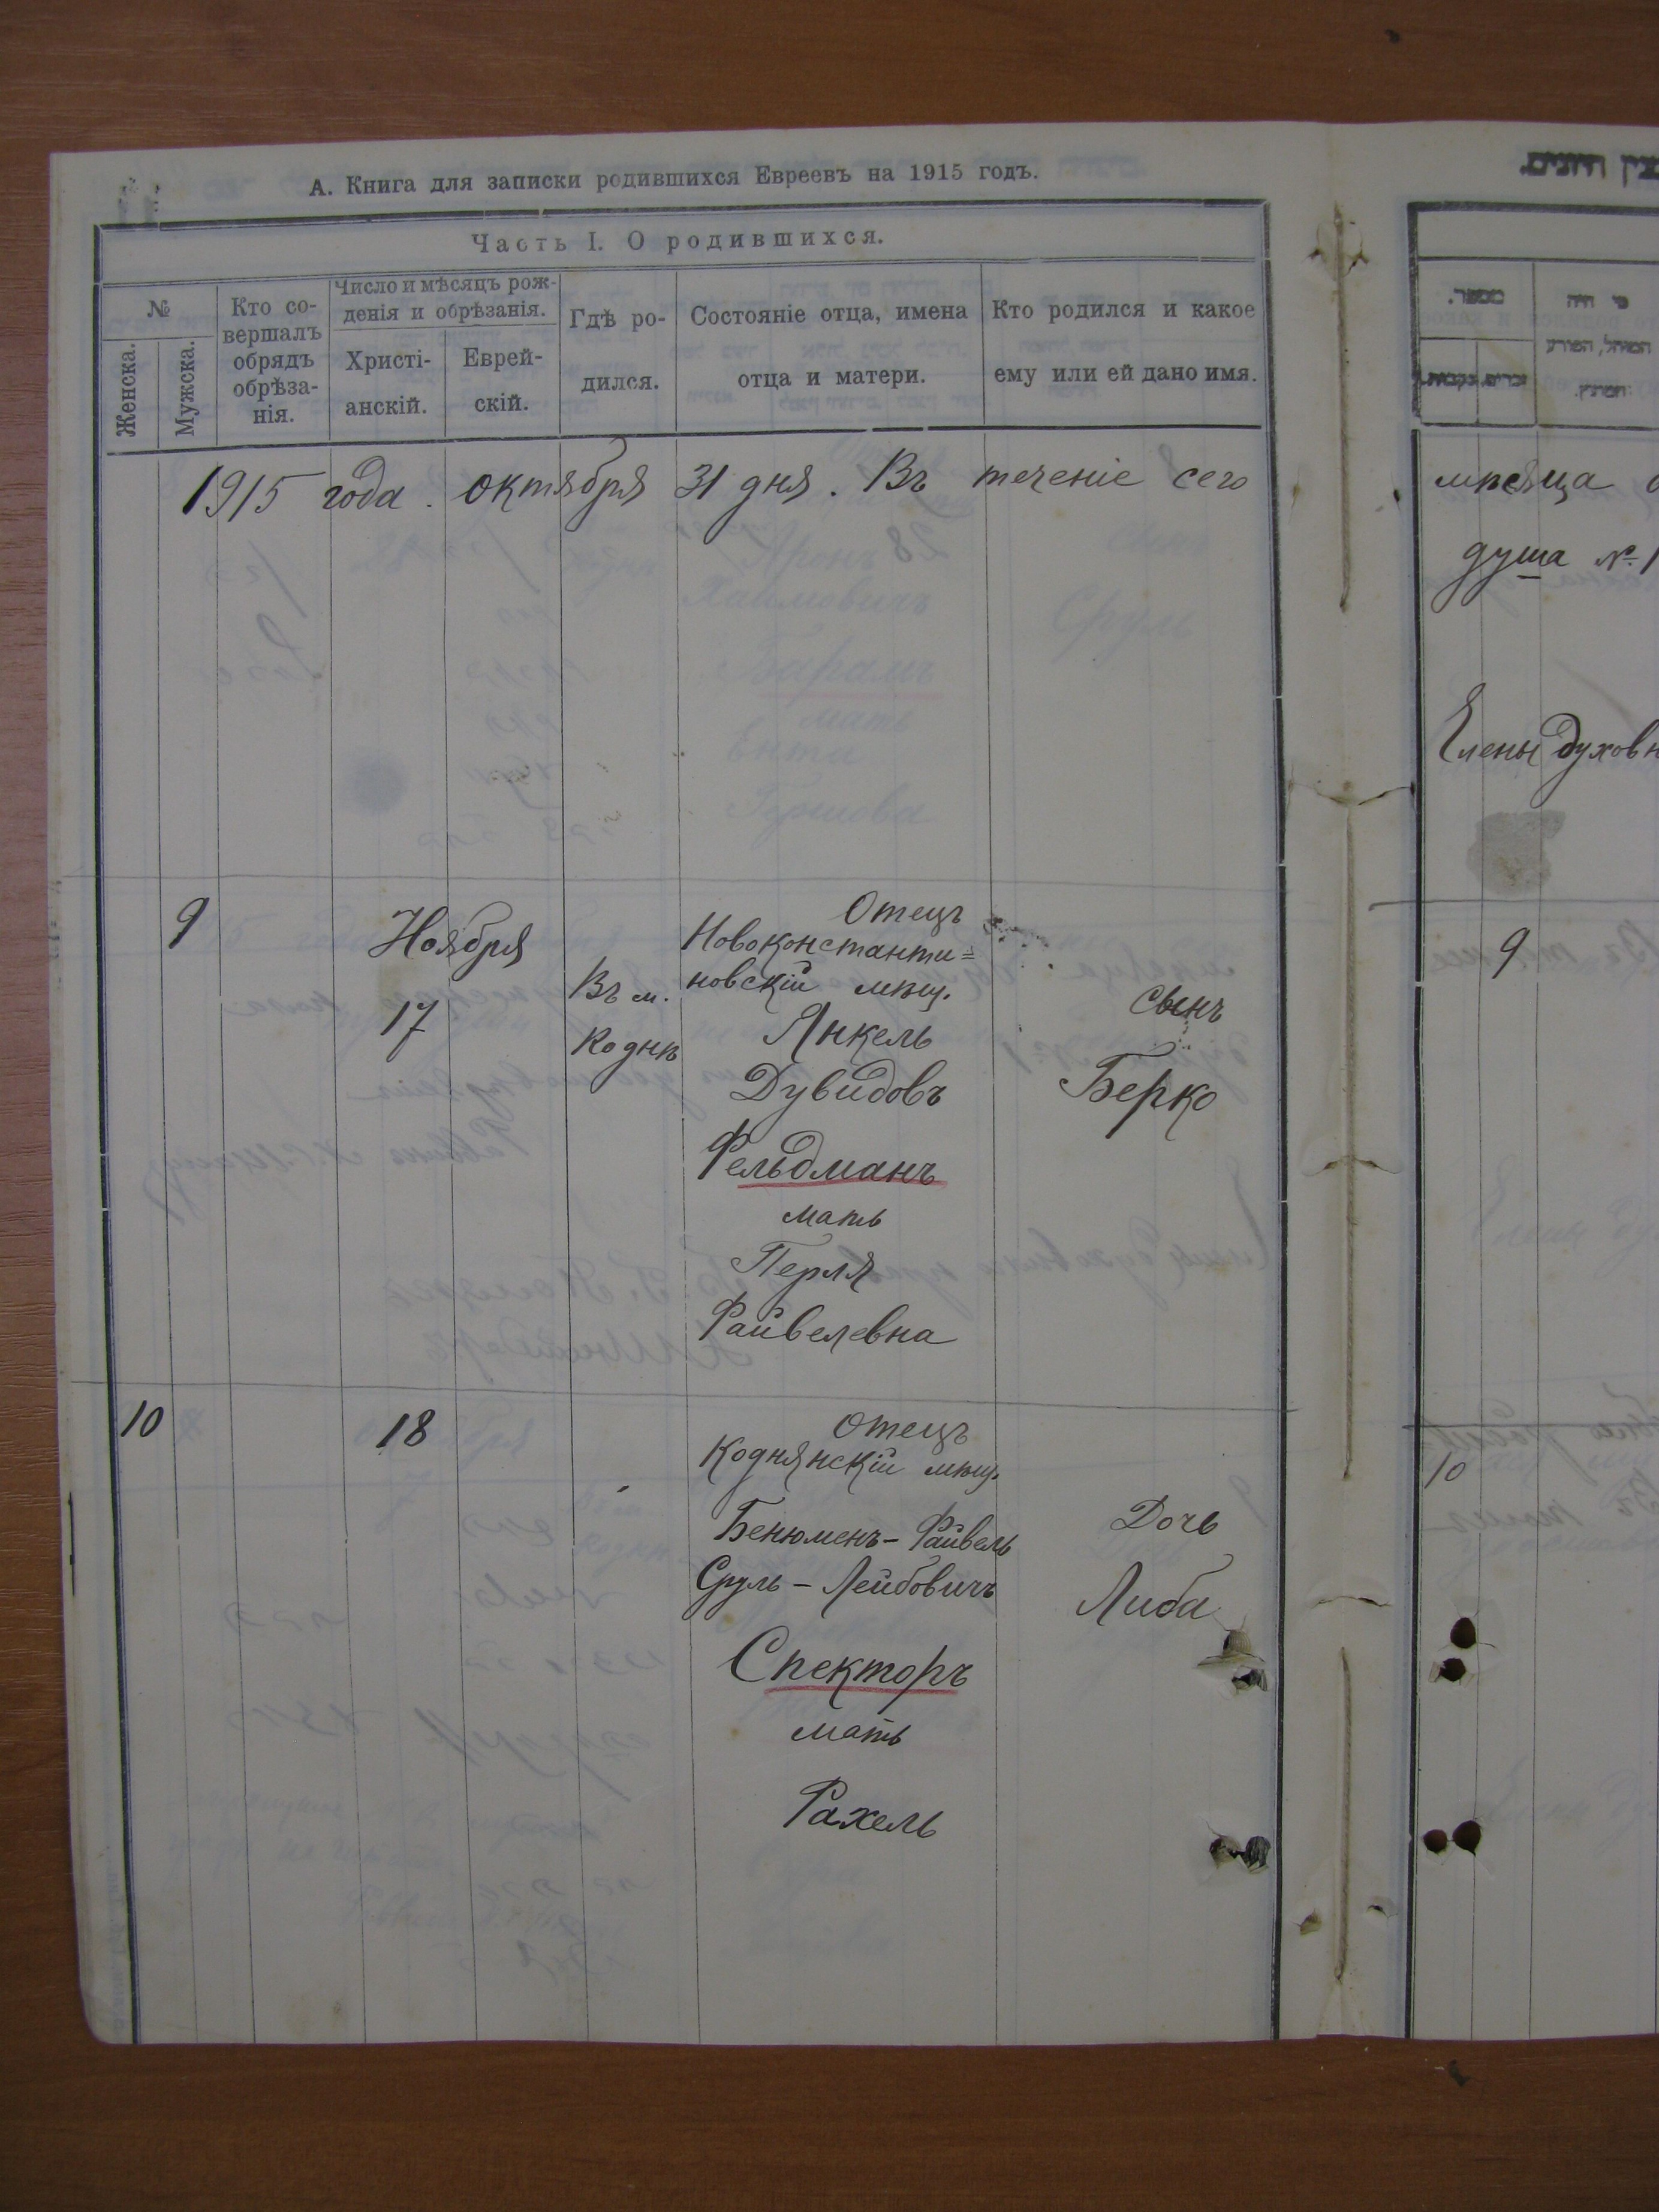 А. Книга для записки родившихся Евреевъ на 1915 годъ.
Часть I. О родившихся.
№
Женска.
Мужска.
Кто со-
вершалъ
обрядъ
обрѣза-
нія.
Число и мѣсяцъ рож-
денія и обрѣзанія.
Христі-
анскій.
Еврей-
скій.
Гдѣ ро-
дился.
Состояніе отца, имена
отца и матери.
Кто родился и какое
ему или ей дано имя.
1915 года. октября 31 дня. Въ теченіе сего
9
Ноября
17
Въ м.
Коднѣ
Отецъ
Новоконстанти=
новскій мѣщ.
Янкель
Дувидовъ
Фельдманъ
мать
Перля
Файвелевна
сынъ
Берко
10
18
Отецъ
Коднянскій мѣщ.
Бенюменъ-Файвель
Сруль-Лейбовичъ
Спекторъ
мать
Рахель
Дочь
Либа
מספר.
זכרים.
נקבות.
מי היה
המוהל, הפורע
מѣсяца
душа №1
Елены Духовн
9
10